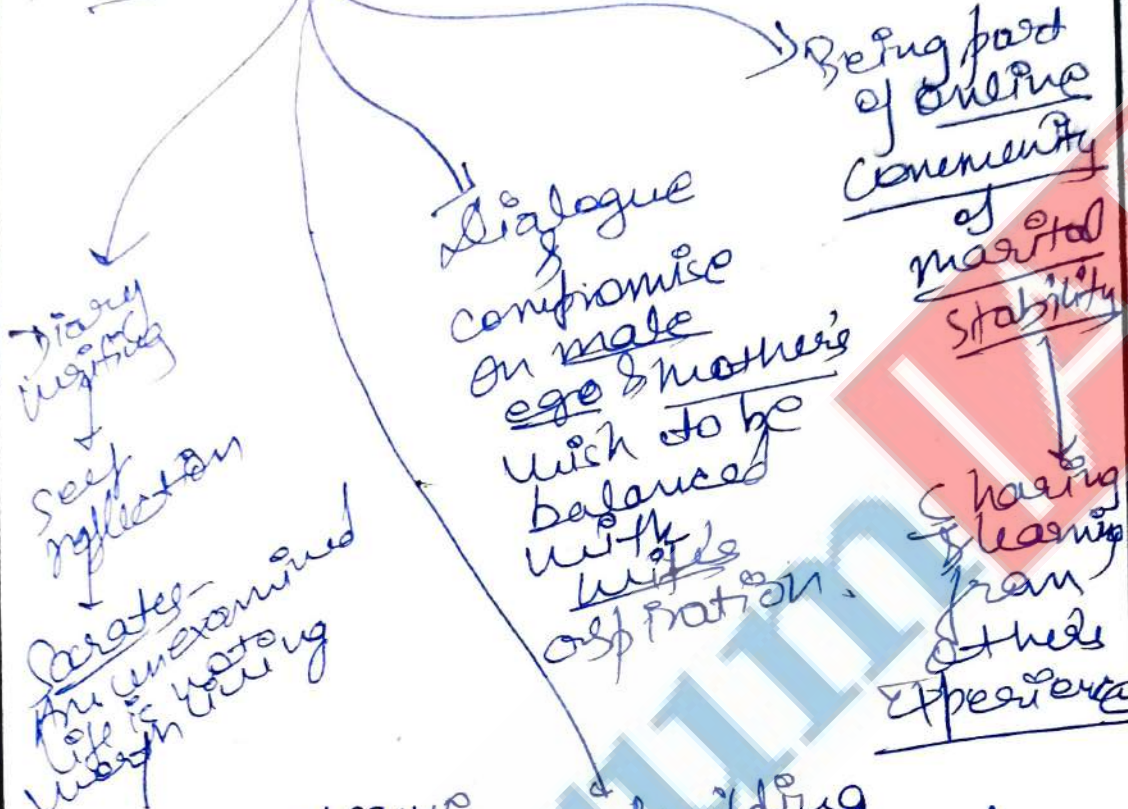 Diary
writing
Self
reflection
Socrates-
An unexamined
life is not
worth living
Dialogue
&
compromise
on male
ego & mother's
wish to be
balanced
with
wife's
aspiration.
Being part
of online
community
of
marital
stability
Sharing
& learning
from
other's
experience